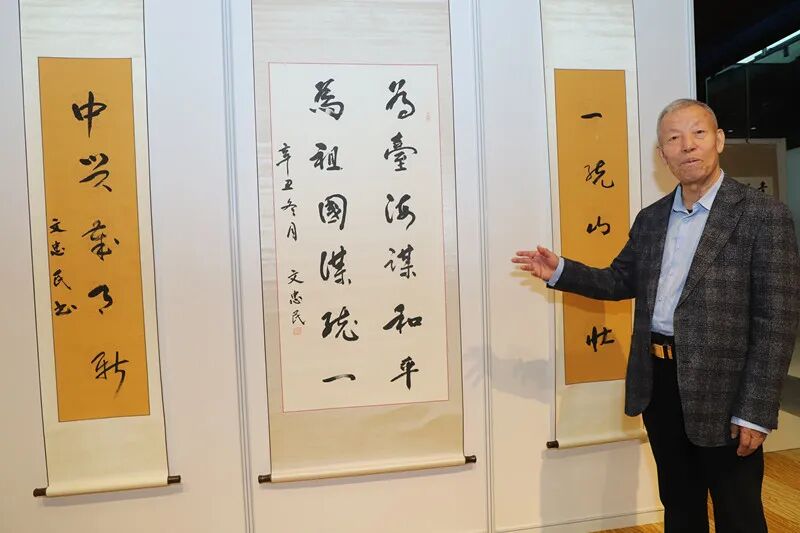 一統山河壯
為臺海謀和平
為祖國謀統一
辛丑冬月 文忠民
中興歲月新
文忠民书